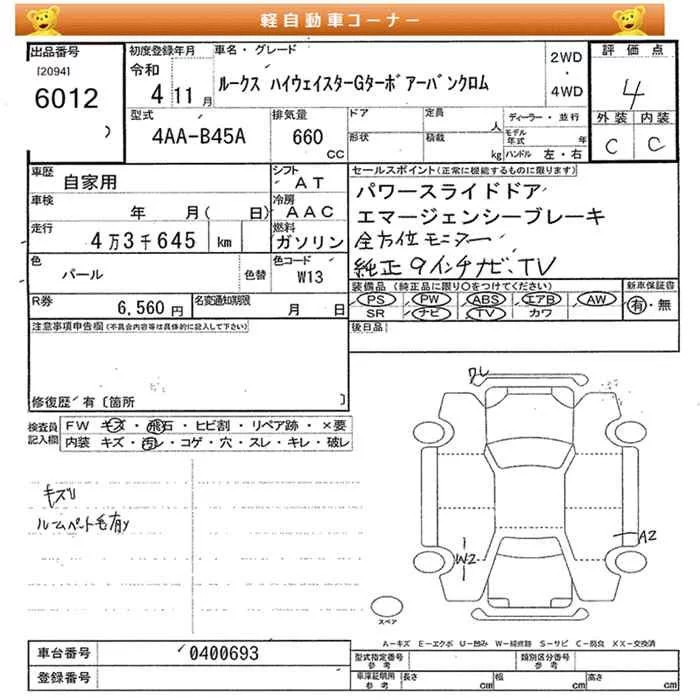 軽自動車コーナー
出品番号
[2094]
6012
初度登録年月
令和
4 11月
車名・グレード
ルークス ハイウェイスターGターボ アーバンクロム
2WD
・
4WD
評価点
4
外装 内装
C C
型式
4AA-B45A
排気量
660
CC
ドア
形状
定員
人
積載
kg
ディーラー・並行
モデル年式 年
ハンドル 左・右
車歴
自家用
シフト
AT
車検
年 月( 日)
冷房
AAC
走行
4万3千645 km
燃料
ガソリン
色
パール
色替
色コード
W13
R券
6,560 円
名変通知期限
月 日
セールスポイント(正常に機能するものに限ります)
パワースライドドア
エマージェンシーブレーキ
全方位モニター
純正9インチナビ、TV
装備品 (純正品に限り○をつけてください)
PS PW ABS エアB AW
SR ナビ TV カワ
新車保証書
有・無
後日品
注意事項申告欄(不具合内容等は具体的に記入して下さい)
修復歴 有〔箇所 〕
検査員記入欄
FW キズ・飛石・ヒビ割・リペア跡・×要
内装 キズ・汚レ・コゲ・穴・スレ・キレ・破レ
キズリ
ルームペット毛有り
ワレ
A2
W2
スペア
A-キズ E-エクボ U-凹み W-補修跡 S-サビ C-腐食 XX-交換済
車台番号
0400693
登録番号
型式指定番号
参考
類別区分番号
参考
車庫証明用
参考
長さ cm
幅 cm
高さ cm